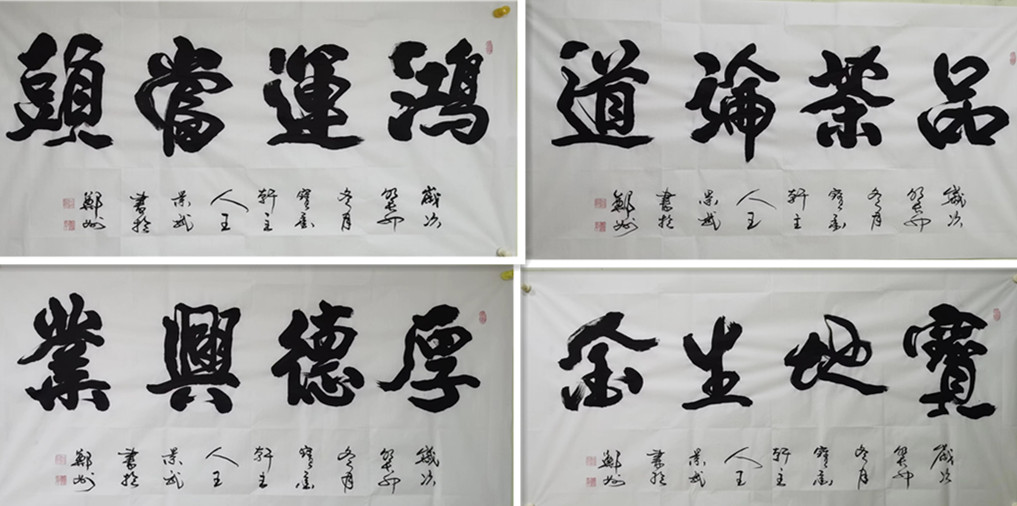 鴻運當頭
歲次癸卯冬月寶軒主人王景武書於鄭州
品茶論道
歲次癸卯冬月寶軒主人王景武書於鄭州
厚德興業
歲次癸卯冬月寶軒主人王景武書於鄭州
寶地生金
歲次癸卯冬月寶軒主人王景武書於鄭州